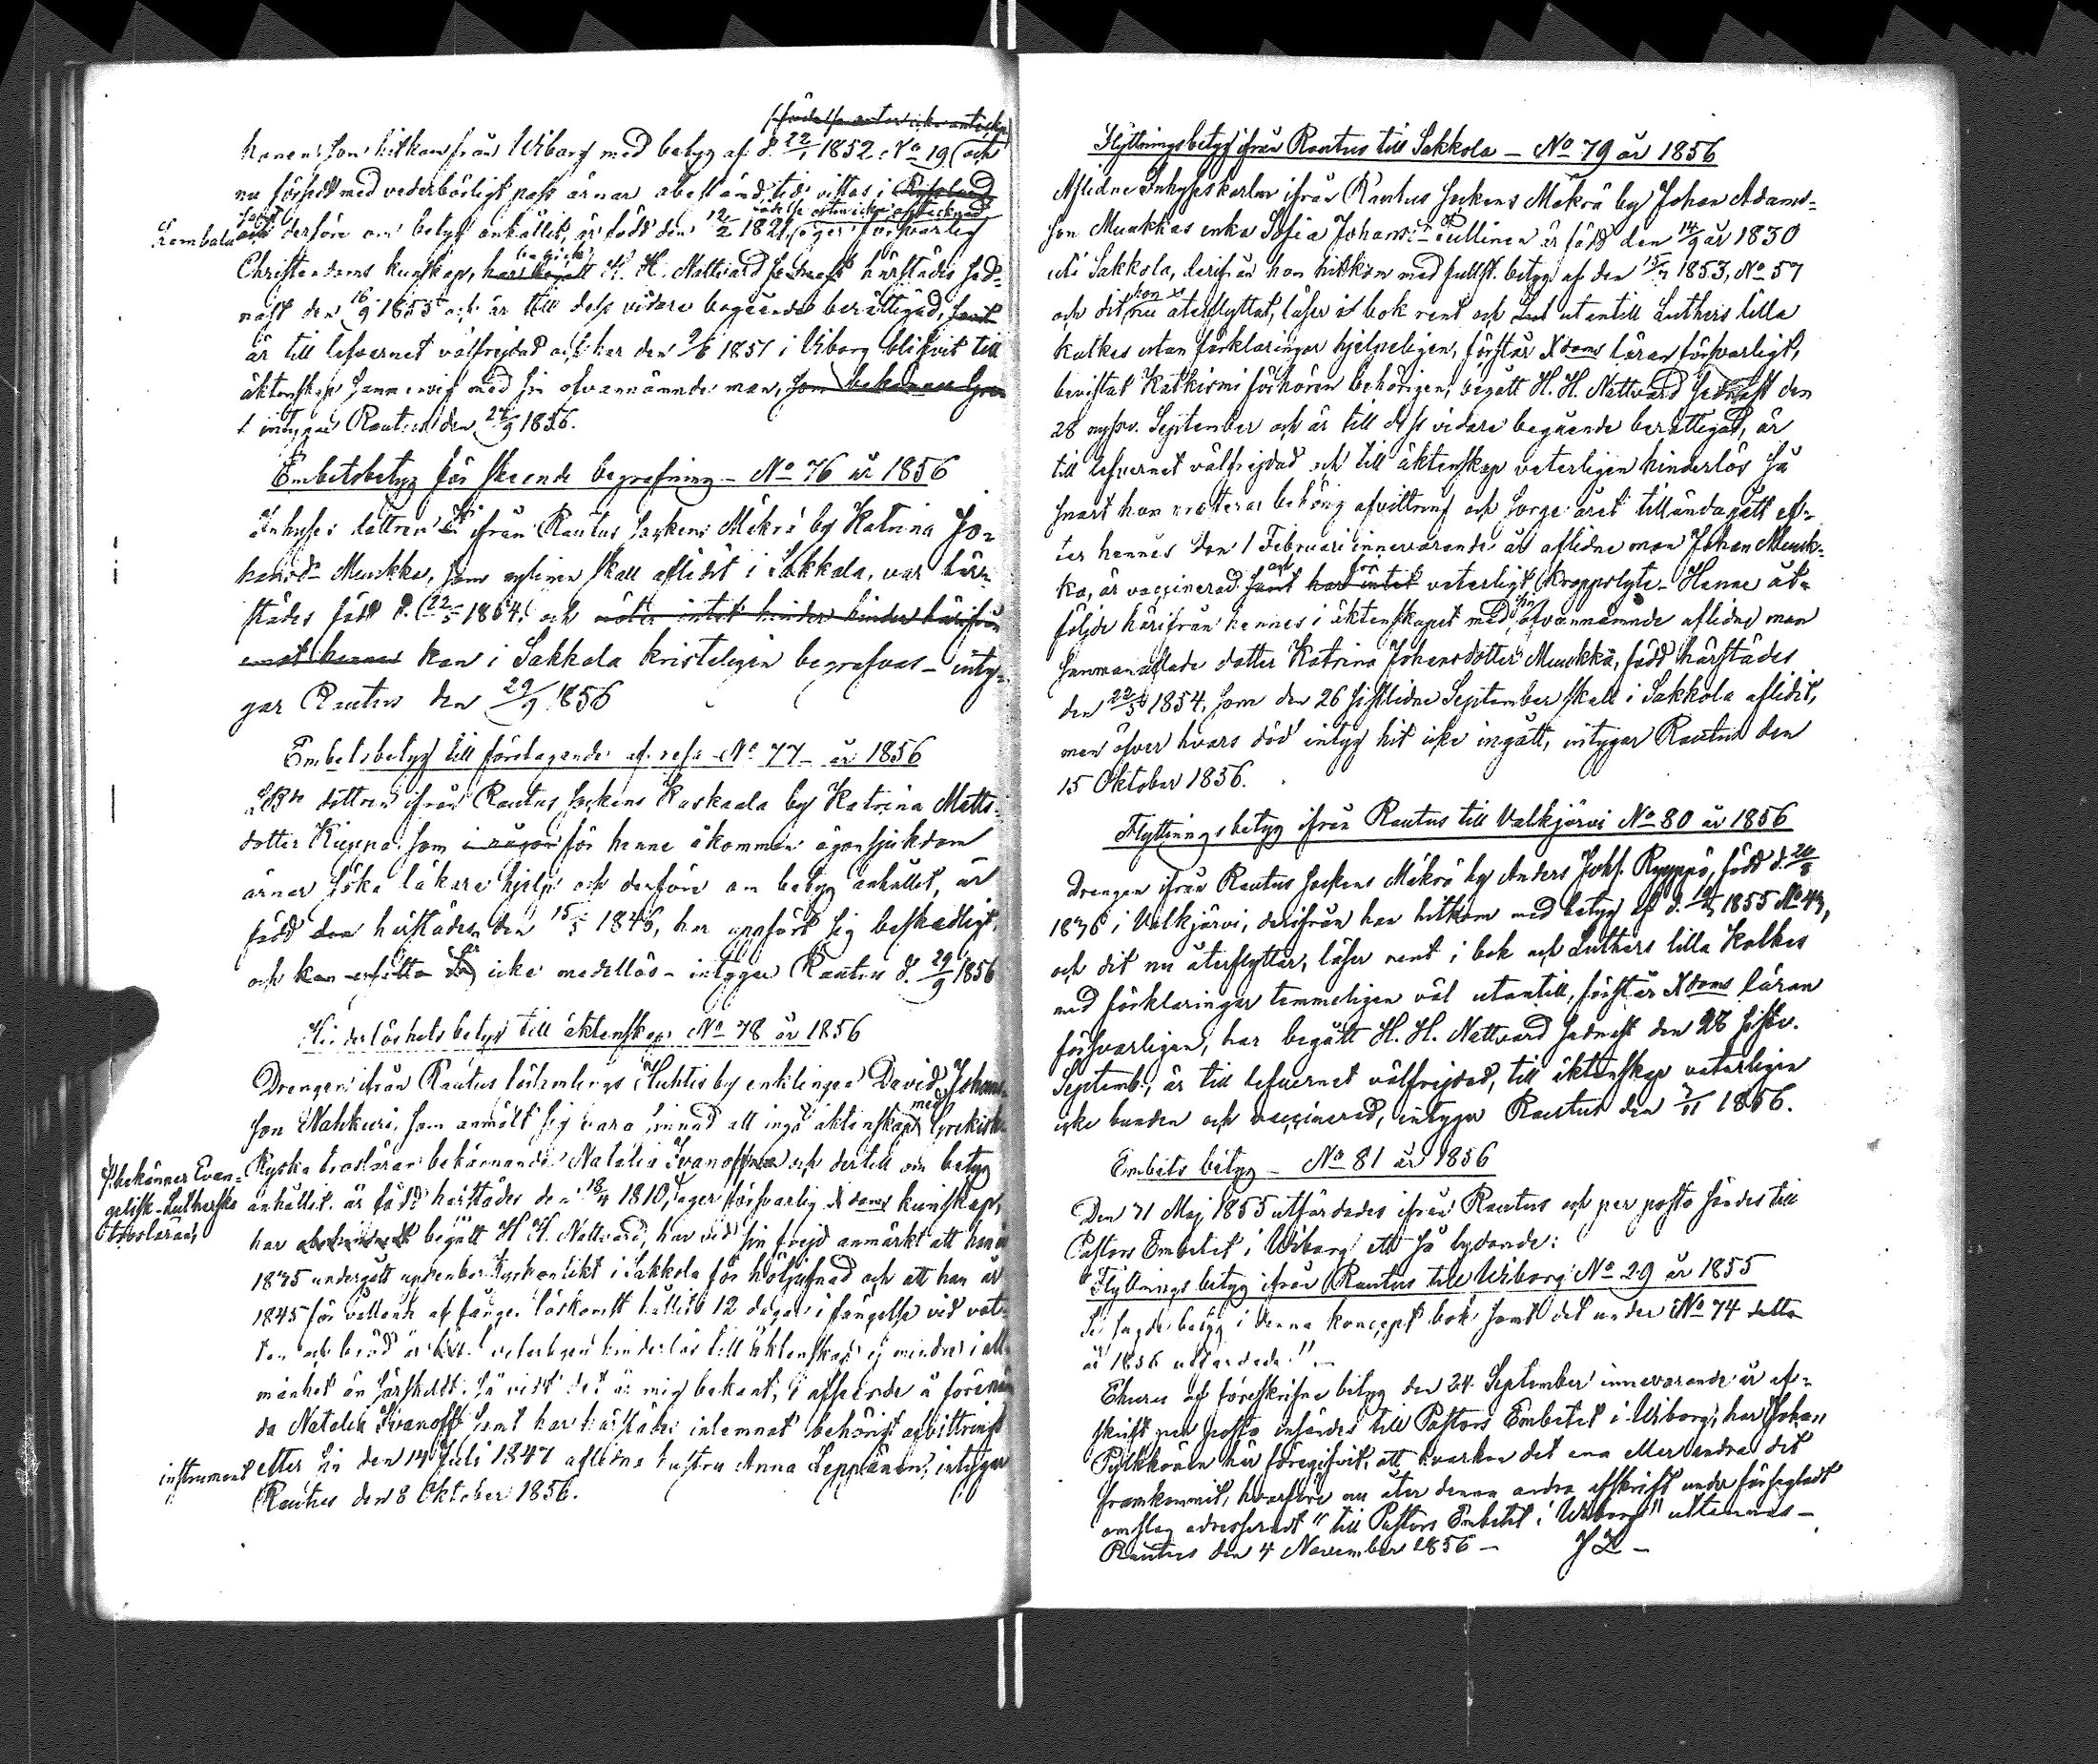 födelseorten icke anteckn
honen som hitkom från Wiborg med betyg af d. 22/1 1852 No 19 (och
nu försedt med vederbörligt pass ärnar vistas i Ryssland
födelse orten icke antecknad
Sembala samt derföre om betyg anhållit, är född den 12/2 1821, (eger försvarlig
Christendoms kunskap, har begått H. H. Nattvard härstädes sed-
nast den 16/9 1855 och är till dess vidare begående berättigad, samt
är till lefvernet välfrejdad och har den 9/6 1851 i Viborg blifvit till
äktenskap sammanvigd med sin ofvannämnde man, som bekänner
intygar Rautus den 24/9 1856.
Embetsbetyg för skeende begrafning - No 76 år 1856
Inhyses dottren ifrån Rautus Sockens Mäkrä by Katrina Jo-
hansd:r Muukka, som nyligen skall aflidit i Sakkola, var här-
städes född d. 22/5 1854, och möter intet hinder härifrån
emot hennes kan i Sakkola kristeligen begrafvas - inty-
gar Rautus den 29/9 1856
Embetsbetyg till företagande af resa No 77 - år 1856
dottren ifrån Rautus Sockens Kaskaala by Katrina Matts-
dotter Kiuppa som för henne åkommen ögonsjukdom
ärnar söka läkare hjelp och derföre om betyg anhållit, är
född den härstädes den 15/5 1846, har uppfört sig beskedligt,
och är icke medellös - intygar Rautus d. 29/9 1856
Hinderlöshets betyg till äktenskap No 78 år 1856
Drengen ifrån Rautus Huhtis by enklingen David Johans-
med
son Nahkuri, som anmält sig vara sinnad att ingå äktenskap Grekisk-
Ryska trosläran bekännande Natalia Ivanoffna och dertill om betyg
P. bekänner Evan-
gelisk-Lutherska
trosläran,
anhållit, är född härstädes den 18/4 1810, eger försvarlig Xdoms kunskap,
har begått H. H. Nattvard, har vid sin frejd anmärkt att han
1835 undergått uppenbar kyrkoplikt i Sakkola för och att han år
1845 för vållande af fånges löskomst hållits 12 dagar i fängelse vid vat-
ten och bröd är veterligen hinderlös till äktenskap ej mindre i all-
mänhet än särskildt, så vidt det är mig bekant, i afseende å förenäm-
da Natalia Ivanoff samt har härstädes inlemnat behörigt afvittrings
instrument efter sin den 14 Juli 1847 aflidne hustru Anna Leppänen, intygar
Rautus den 8 Oktober 1856.
Flyttningsbetyg ifrån Rautus till Sakkola - No 79 år 1856
Aflidne Inhyseskarlen ifrån Rautus Sockens Mäkrä by Johan Adams-
son Muukkas enka Sofia Johansd:r Pullinen är född den 14/9 år 1830
i Sakkola, derifrån hon hitkom med fullst. betyg af den 15/7 1853, No 57
och dit hon nu återflyttat, läser i bok rent och utantill Luthers lilla
Katkes utan förklaringar hjelpeligen, förstår Xdoms läran försvarligt,
bevistat Katkismi förhören behörigen, begått H. H. Nattvard sednast den
28 nyssv. September och är till dess vidare begående berättigad, är
till lefvernet välfrejdad och till äktenskap veterligen hinderlös så
snart hon behörig afvittring och sorge året tilländagått ef-
ter hennes den 1 Februari innevarande år aflidne man Johan Muuk-
ka, är vaccinerad och har intet veterligt kroppslyte - Henne åt-
följde härifrån hennes i äktenskapet med sin ofvannämnde aflidne man
sammanaflade dotter Katrina Johansdotter Muukka, född härstädes
den 22/5 1854, som den 26 sistlidne September skall i Sakkola aflidit,
men öfver hvars död intyg hit icke ingått, intygar Rautus den
15 Oktober 1856.
Flyttningsbetyg ifrån Rautus till Valkjärvi No 80 år 1856
Drengen ifrån Rautus Sockens Mäkrä by Anders Johs. Ryyppö, född d. 20/8
1836 i Valkjärvi, derifrån han hitkom med betyg af d. 1855 No 43,
och dit nu återflyttar, läser rent i bok och Luthers lilla Katkes
med förklaringar temmeligen väl utantill, förstår Xdoms läran
försvarligen, har begått H. H. Nattvard sednast den 28 sistv.
Septemb., är till lefvernet välfrejdad, till äktenskap veterligen
icke bunden och vaccinerad, intygar Rautus den 3/11 1856.
Embets betyg - No 81 år 1856
Den 31 Maj 1855 utfärdades ifrån Rautus och per posto sändes till
Pastors Embetet i Wiborg ett så lydande:
"Flyttnings betyg ifrån Rautus till Wiborg No 29 år 1855
Se sagde betyg i denna koncept bok samt det under No 74 detta
år 1856 utfärdade." -
Ehuru af föreskrifne betyg den 24 September innevarande år af-
skrift per posto insändes till Pastors Embetet i Wiborg, har Johan
Pylkkönen här föregifvit, att hvarken det ena eller andra dit
framkommit, hvarföre nu åter denna andra afskrift under försegladt
omslag adresseradt "till Pastors Embetet i Wiborg" uttammas -
Rautus den 4 November 1856 -